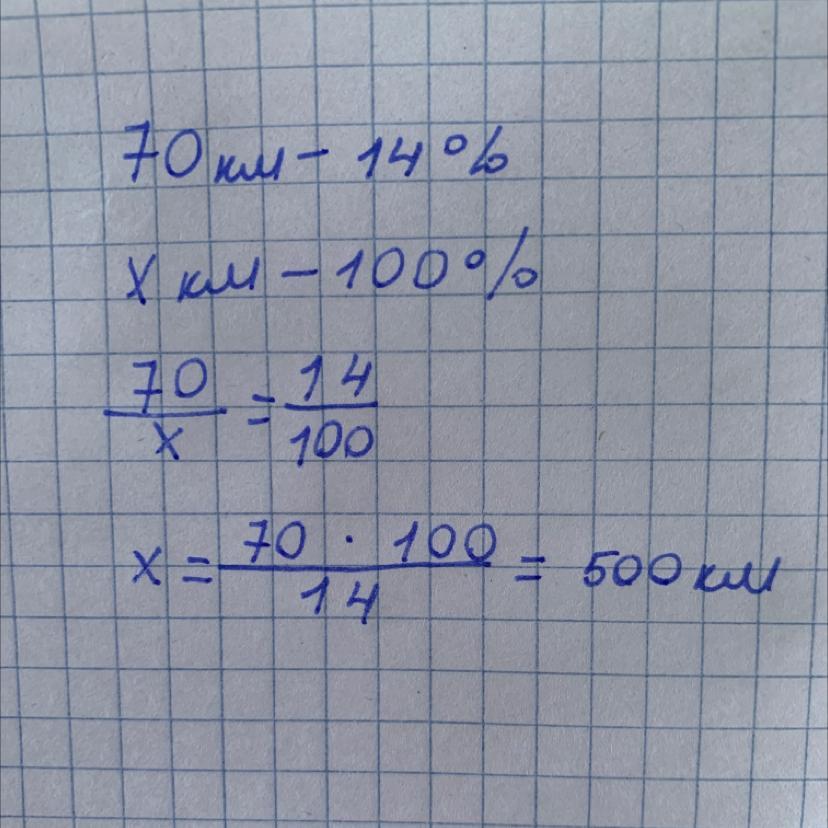 70 км – 14 %
x км – 100 %
70/x = 14/100
x = 70 · 100/14 = 500 км